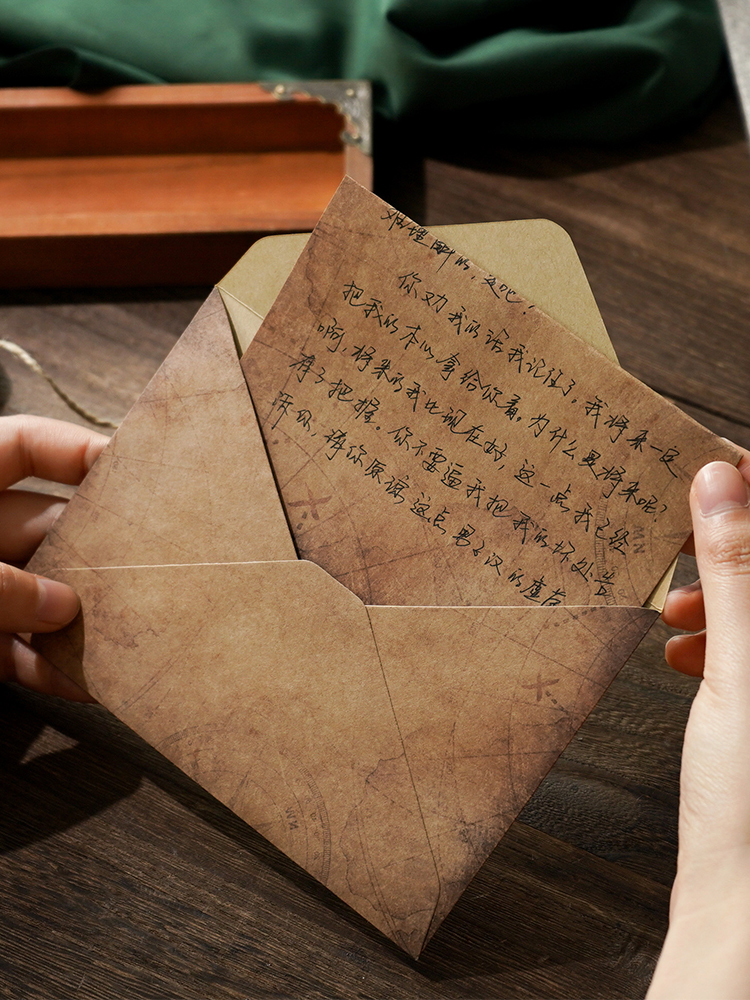 难理解的,是吧!
你劝我的话我记住了。我将来一定
把我的本心拿给你看。为什么是将来呢?
啊,将来的我比现在好,这一点我已经
有了把握。你不要逼我把我的坏处告
诉你,请你原谅这点男子汉的虚荣